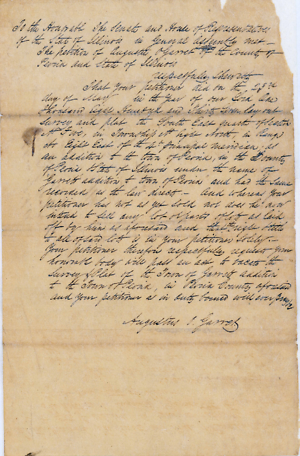 To the Honorable The Senate and House of Representatives
of the State of Illinois in General Assembly met
The petition of Augustus O Garret of the County of
Peoria and State of Illinois
respectfully sheweth
That your petitioner did on the
day of May in the year of our Lord One
thousand Eight Hundred and Thirty
survey and plat the South East quarter of Section
No in Township No Eight North, in Range
No Eight East of the 4th Principal meridian, as
an addition to the town of Peoria, in the County
of Peoria State of Illinois under the name of
Garrett addition to town of Peoria and had the same
recorded as the law direct - and whereas your
petitioner has not as yet sold nor does he now
intend to sell any lot or parts of lot as laid
off by him as aforesaid and the right
of all of said lot is in your petitioner solely -
Your petitioner therefore respectfully request your
honorable body will pass an act to vacate the
survey & plat of the Town of Garrett addition
to the Town of Peoria, in Peoria County aforesaid
and your petitioner as in duty bound will ever pray
Augustus O. Garrett